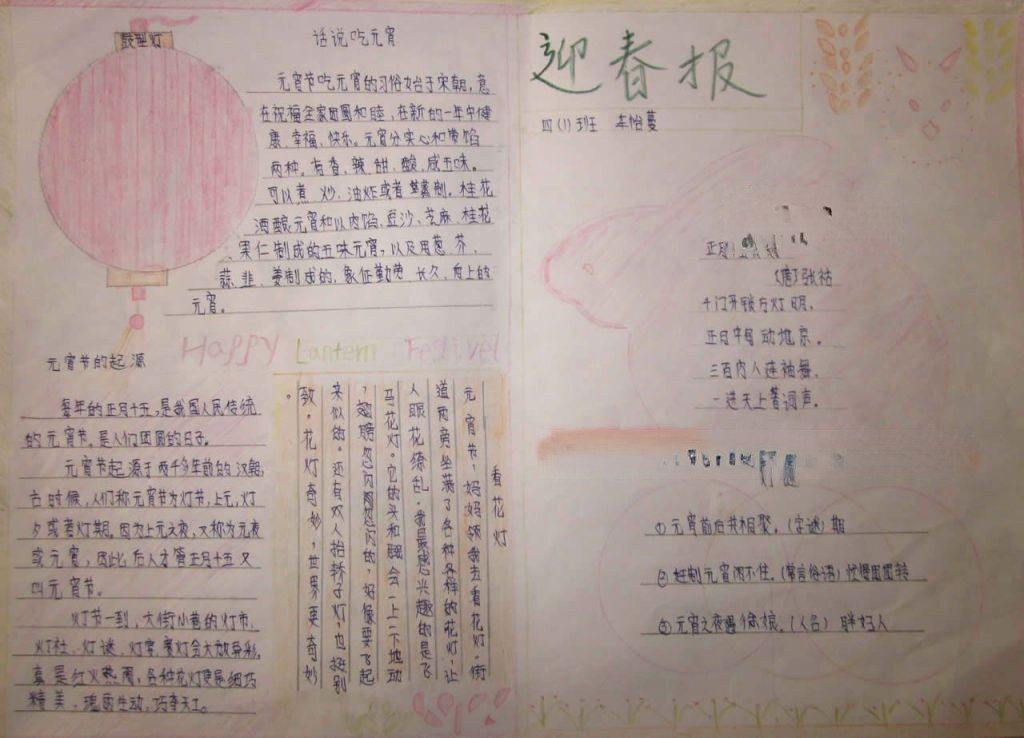 话说吃元宵
元宵节吃元宵的习俗始于宋朝,意
在祝福全家团圆和睦,在新的一年中健
康、幸福、快乐。元宵分实心和带馅
两种。有香、辣、甜、酸、咸五味。
可以煮、炒、油炸或者蒸制。桂花
酒酿元宵和以肉馅、豆沙、芝麻、桂花
、果仁制成的五味元宵,以及用葱、芥、
蒜、韭、姜制成的,象征勤劳、长久、向上的
元宵。
Happy Lantern Festivel
元宵节的起源
每年的正月十五,是我国人民传统
的元宵节。是人们团圆的日子。
元宵节起源于两千多年前的汉朝,
古时候,人们称元宵节为灯节,上元,灯
夕或者灯期。因为上元之夜,又称为元夜
或元宵,因此后人才管正月十五又
叫元宵节。
灯节一到,大街小巷的灯市、
灯社、灯谜、灯字、赛灯会大放异彩,
真是红火热闹,各种花灯更是细巧
精美、瑰丽生动,巧夺天工。
看花灯
元宵节,妈妈领我去看花灯。街
道两旁坐满了各种各样的花灯,让
人眼花缭乱。我最感兴趣的是飞
马花灯。它的头和腿会一上一下地动
,翅膀忽闪忽闪的,好像要飞起
来似的。还有双人抬轿子灯,也挺别
致。花灯奇妙,世界更奇妙
。
迎春报
四(1)班 车怡蔓
(唐)张祜
千门开锁万灯明,
正月中旬动地京。
三百内人连袖舞,
一进天上著词声。
①元宵前后共相聚。(字谜)期
②赶制元宵闲不住。(常言俗语)忙得团团转
③元宵之夜遇徐娘。(人名)